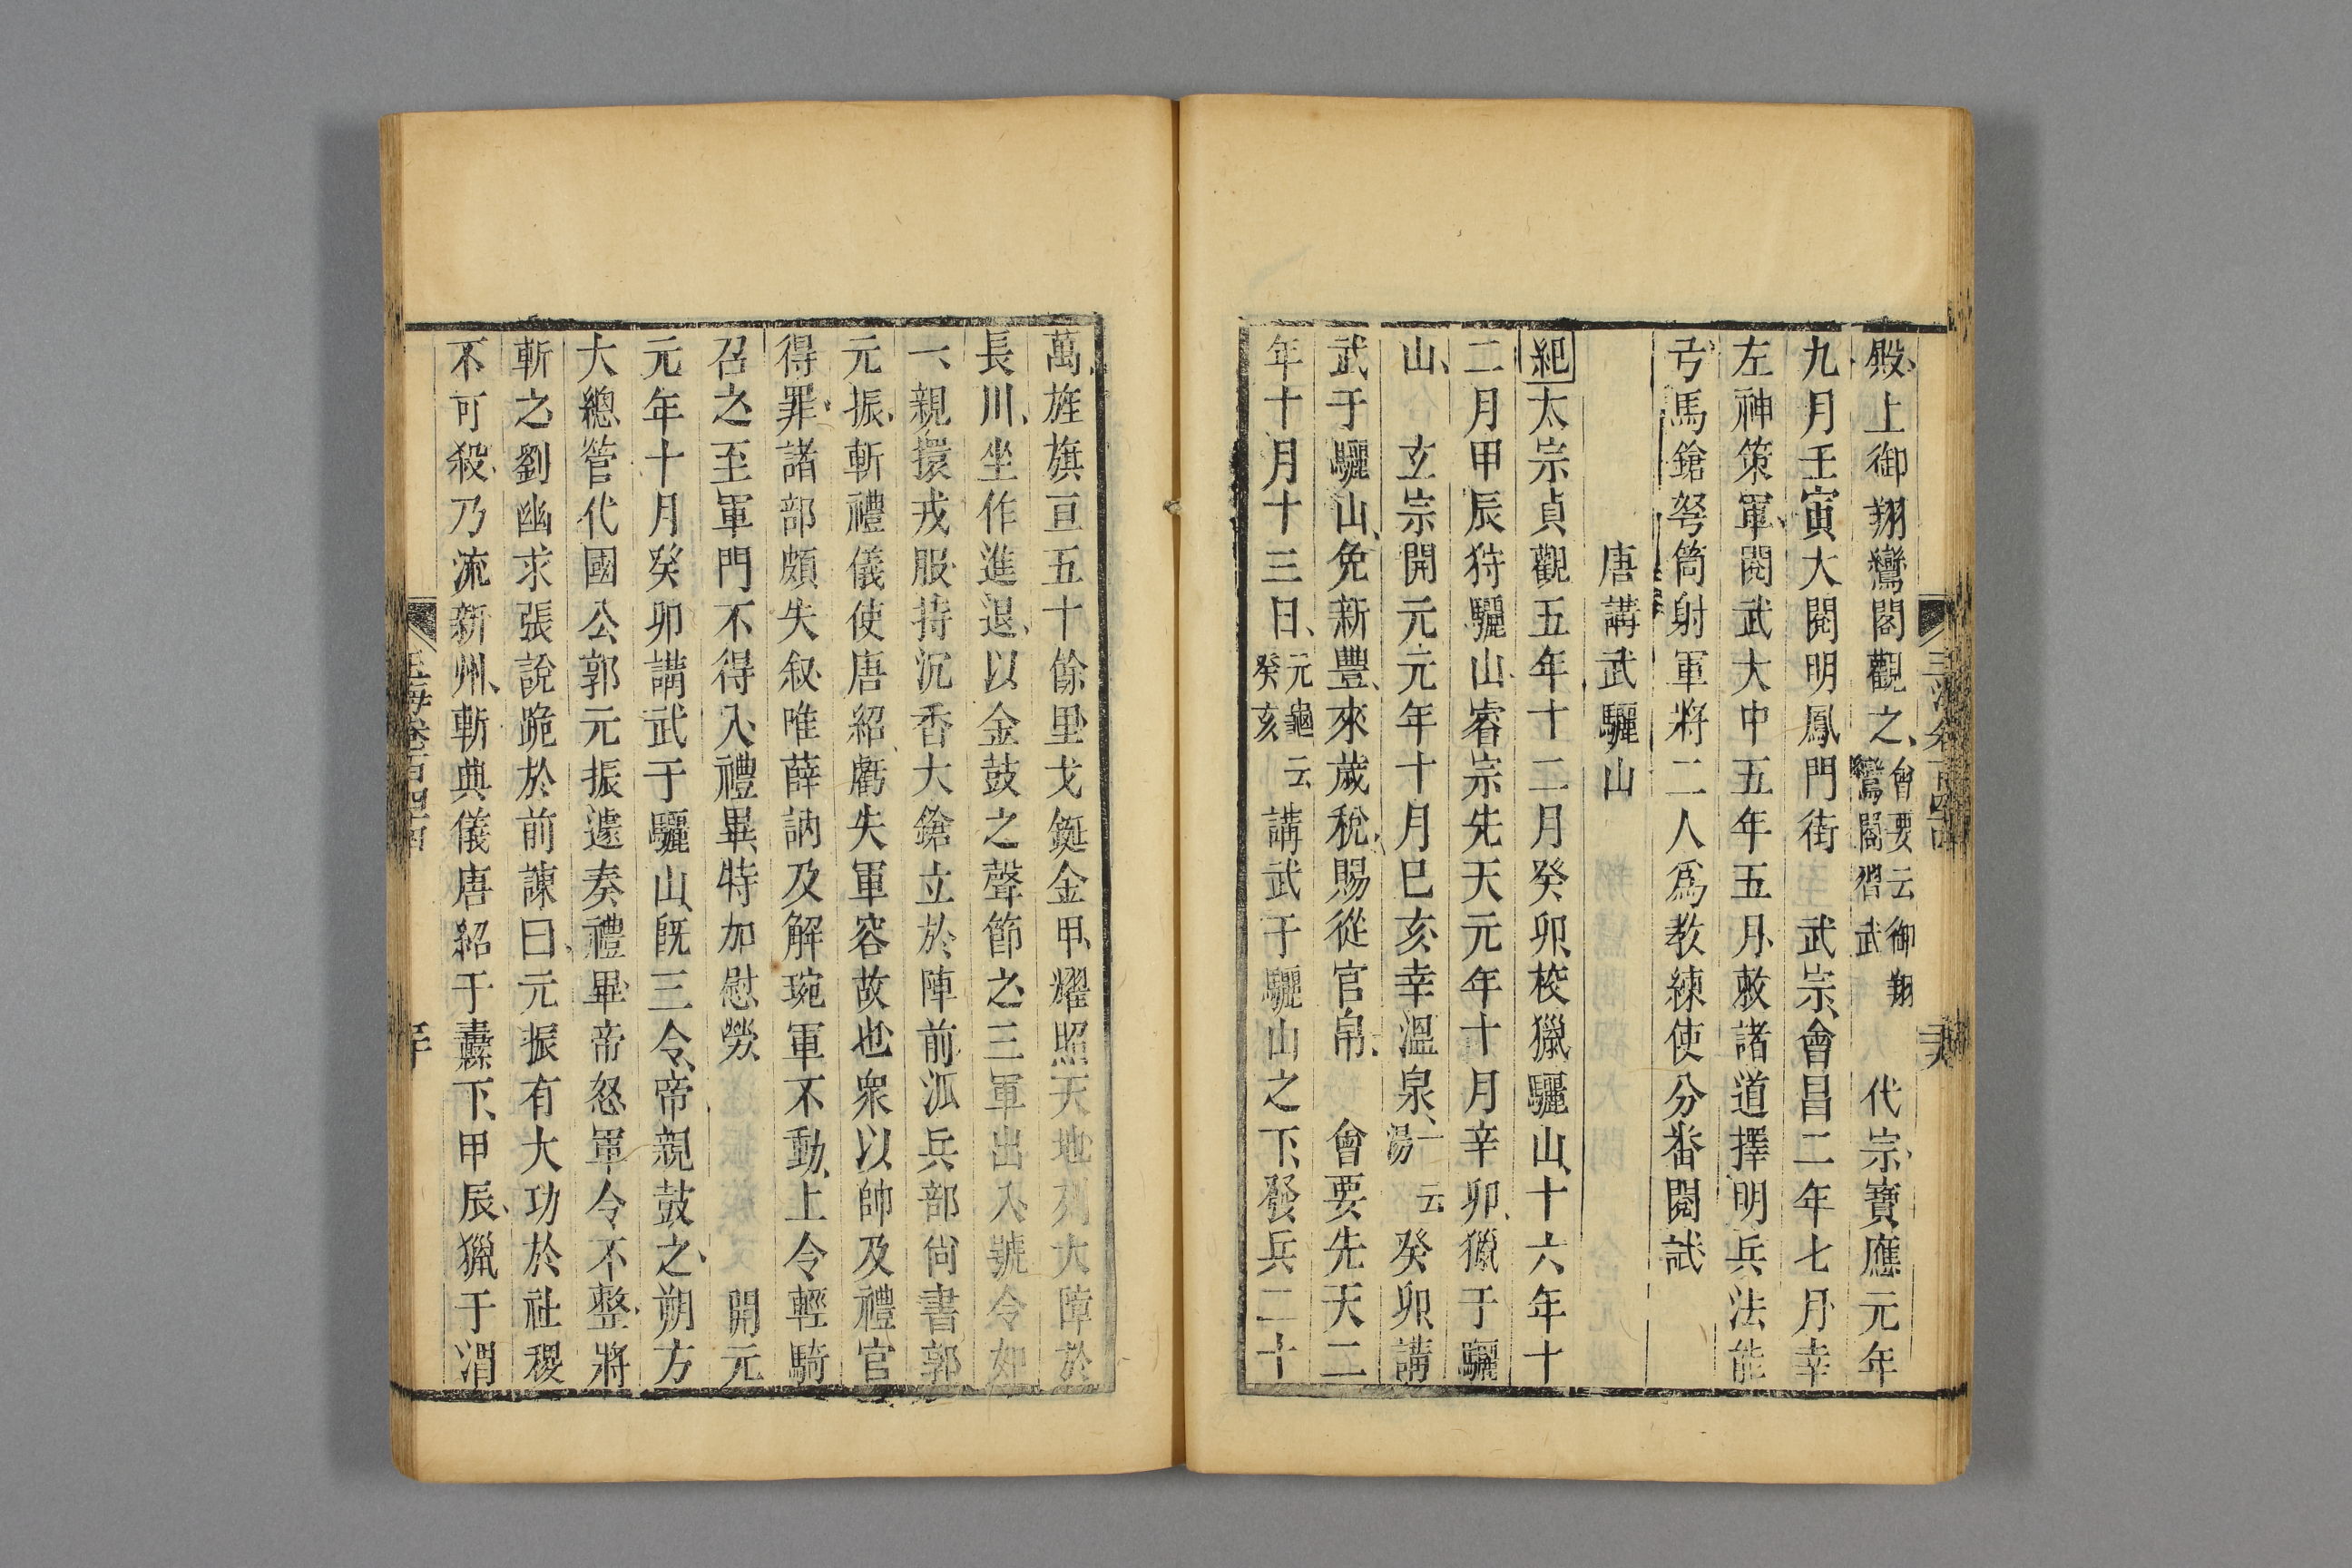 殿上御翔鸞閣觀之會要云御翔鸞閣習武 代宗寶應元年
九月壬寅大閱明鳳門街 武宗會昌二年七月幸
左神策軍閱武大中五年五月敕諸道擇明兵法能
弓馬鎗弩筒射軍將二人爲教練使分番閱試
唐講武驪山
紀太宗貞觀五年十二月癸卯校獵驪山十六年十
二月甲辰狩驪山睿宗先天元年十月辛卯獵于驪
山 玄宗開元元年十月巳亥幸溫泉一云湯癸卯講
武于驪山免新豐來歲稅賜從官帛 會要先天二
年十月十三日元龜云癸亥講武于驪山之下發兵二十
萬旌旗亘五十餘里戈鋋金甲耀照天地列大陣於
長川坐作進退以金鼓之聲節之三軍出入號令如
一親擐戎服持沉香大鎗立於陣前泒兵部尙書郭
元振斬禮儀使唐紹虧失軍容故也衆以帥及禮官
得罪諸部頗失叙唯薛訥及解琬軍不動上令輕騎
召之至軍門不得入禮畢特加慰勞 開元
元年十月癸卯講武于驪山既三令帝親鼓之朔方
大總管代國公郭元振遽奏禮畢帝怒軍令不整將
斬之劉幽求張說跪於前諫曰元振有大功於社稷
不可殺乃流新州斬典儀唐紹于纛下甲辰獵于渭
玉海卷百四十四
三十